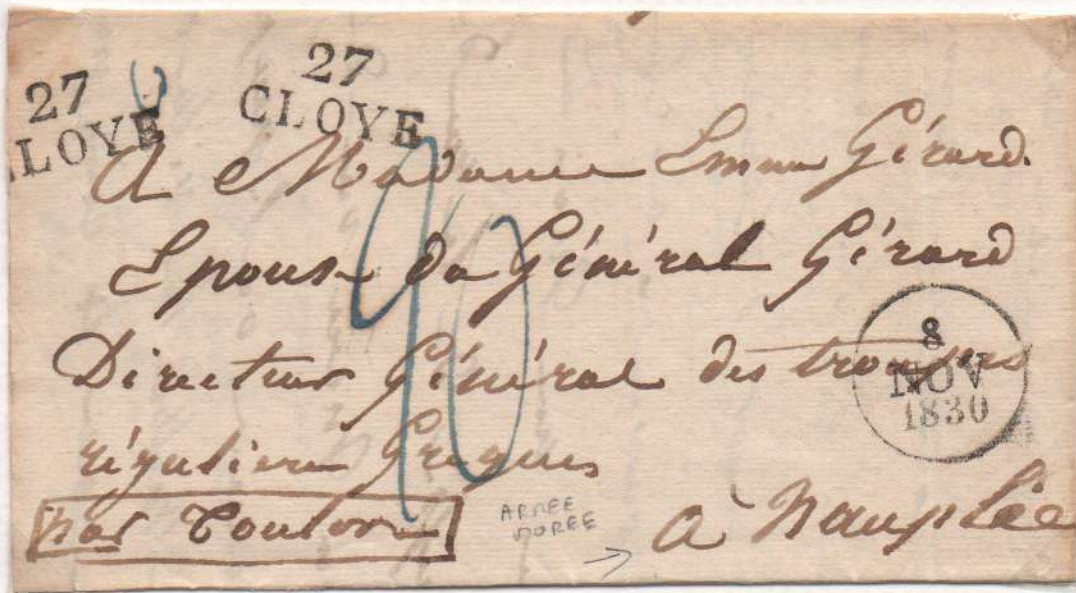 27
LOYE
27
CLOYE
A Madame Emma Gérard
Epouse du Général Gérard
Directeur Général des troupes
régulières Greques
par Toulon
à Nauplie
8
NOV
1830
ARMEE
MOREE